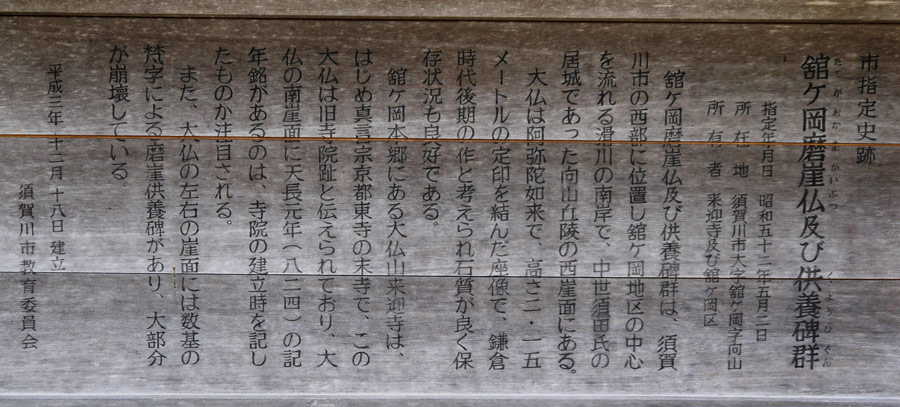 市指定史跡
舘ケ岡磨崖仏及び供養碑群
たてがおかまがいぶつ くようひぐん
指定年月日 昭和五十二年五月二日
所在地 須賀川市大字舘ケ岡字向山
所有者 来迎寺及び舘ケ岡区
舘ケ岡磨崖仏及び供養碑群は、須賀
川市の西部に位置し舘ケ岡地区の中心
を流れる滑川の南岸で、中世須田氏の
居城であった向山丘陵の西崖面にある。
大仏は阿弥陀如来で、高さ二・一五
メートルの定印を結んだ座像で、鎌倉
時代後期の作と考えられ石質が良く保
存状況も良好である。
舘ケ岡本郷にある大仏山来迎寺は、
はじめ真言宗京都東寺の末寺で、この
大仏は旧寺院趾と伝えられており、大
仏の南崖面に天長元年(八二四)の記
年銘があるのは、寺院の建立時を記し
たものか注目される。
また、大仏の左右の崖面には数基の
梵字による磨崖供養碑があり、大部分
が崩壊している。
平成三年十二月十八日 建立
須賀川市教育委員会